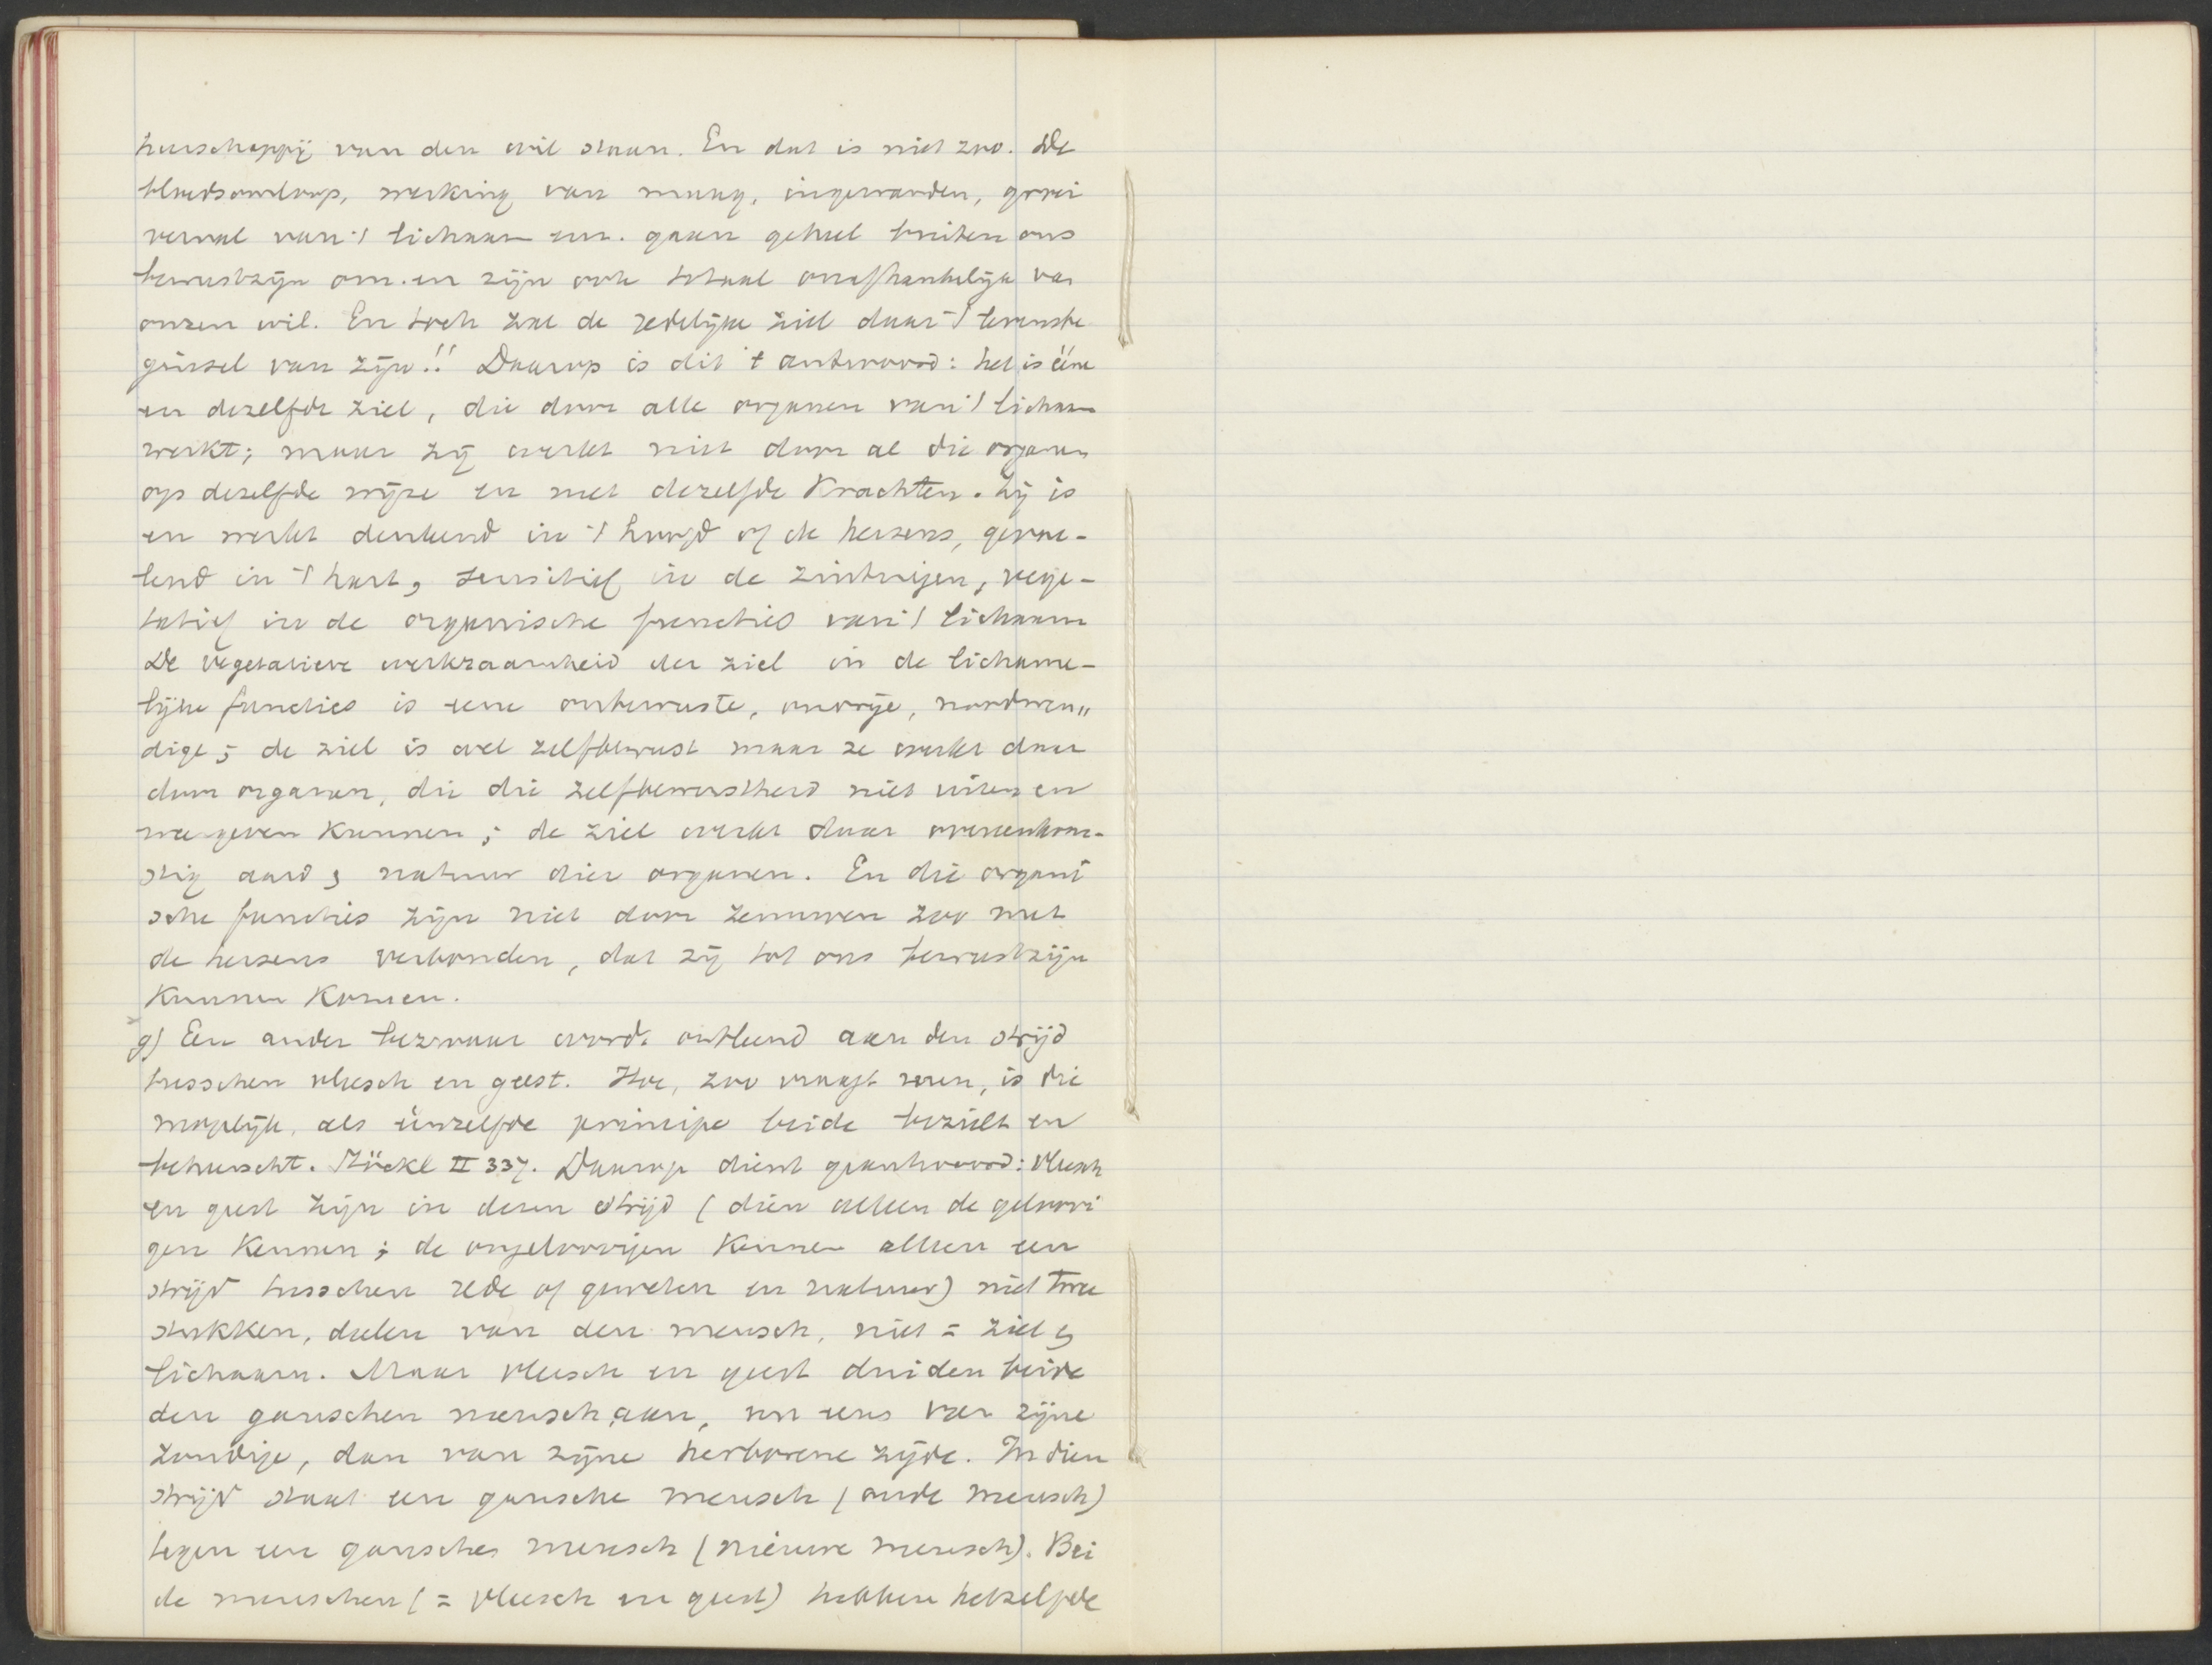 heerschappij van den wil staan. En dat is niet zoo. De
bloedsomloop, werking van maag, ingewanden, groei
verval van 't lichaam enz. gaan geheel buiten ons
bewustzijn om. en zijn ook totaal onafhankelijk van
onzen wil. En toch zou de redelijke ziel daar 't levensbe
ginsel van zijn!! Daarop is dit 't antwoord: het is ééne
en dezelfde ziel, die door alle organen van 't lichaam
werkt; maar zij werkt niet door al die organen
op dezelfde wijze en met dezelfde krachten. Zij is
en werkt denkend in 't hoofd of de hersens, gevoe-
lend in 't hart, sensitief in de zintuigen, vege-
tatief in de organische functies van 't lichaam
De vegetatieve werkzaamheid der ziel in de lichame-
lijke functies is eene onbewuste, onvrije, noodwen„
dige; de ziel is wel zelfbewust maar ze werkt daar
door organen, die die zelfbewustheid niet uiten en
weergeven kunnen; de ziel werkt daar overeenkom-
stig aard & natuur dier organen. En die organi
sche functies zijn niet door zenuwen zoo met
de hersens verbonden, dat zij tot ons bewustzijn
kunnen komen.
g) Een ander bezwaar wordt ontleend aan den strijd
tusschen vleesch en geest. Hoe, zoo vraagt men, is die
mogelijk, als éénzelfde principe beide bezielt en
beheerscht. Stöckl II 337. Daarop dient geantwoord: Vleesch
en geest zijn in dezen strijd (dien alleen de geloovi
gen kennen; de ongeloovigen kennen alleen een
strijd tusschen rede of geweten en natuur) niet twee
stukken, deelen van den mensch, niet = ziel &
lichaam. Maar vleesch en geest duiden beide
den ganschen mensch aan, nu eens van zijne
zondige, dan van zijne herborene zijde. In dien
strijd staat een gansche mensch (oude mensch)
tegen een gansche mensch (nieuwe mensch). Bei
de menschen (= vleesch en geest) hebben hetzelfde